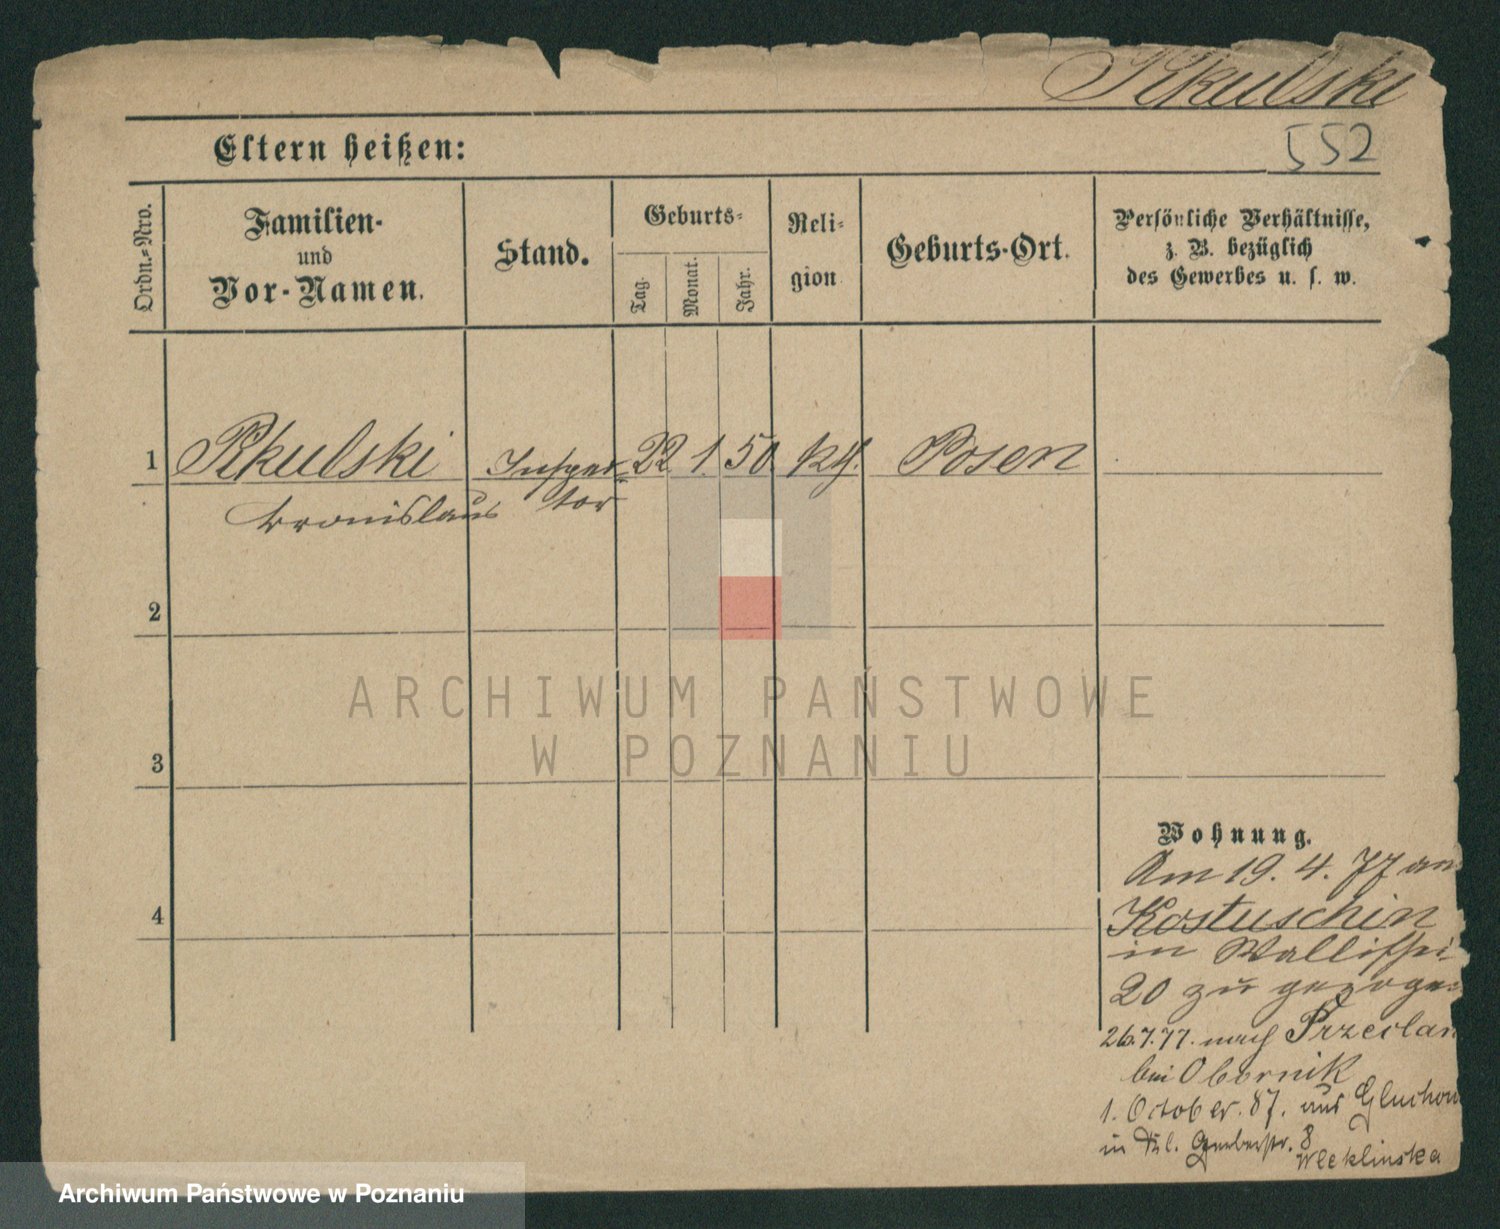 Rkulski
552
Eltern heißen:
Ordn.-Nro.
Familien-
und
Vor-Namen.
Stand.
Geburts-
Tag.
Monat.
Jahr.
Reli-
gion
Geburts-Ort.
Persönliche Verhältnisse,
z. B. bezüglich
des Gewerbes u. s. w.
1 Rkulski Inspek- 22 1. 50 kth. Posen
Bronislaus tor
2
3
4
ARCHIWUM PAŃSTWOWE
W POZNANIU
Wohnung.
Am 19. 4. 77 aus
Kostuschin
in Wallischei
20 zu gezogen
26.7.77. nach Przeclaw
bei Obornik
1. October. 87. aus Gluchowo
in Gerberstr. 8
Weklinska
Archiwum Państwowe w Poznaniu